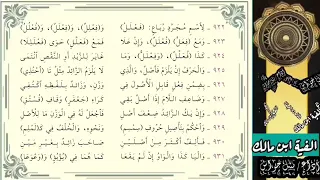 ٩٢٢ لِاسْمٍ مُجَرَّدٍ رُبَاعٍ: (فَعْلَلُ) وَ(فِعْلِلٌ)، وَ(فِعْلَلٌ)، وَ(فُعْلُلُ)
٩٢٣ وَمَعْ (فِعَلٍّ) (فُعْلَلٌ)، وَإِنْ عَلَا فَمَعْ (فَعَلَّلٍ) حَوَى (فَعْلَلِلَا)
٩٢٤ كَذَا (فُعَلِّلٌ)، وَ(فِعْلَلٌّ)، وَمَا غَايَرَ لِلزَّيْدِ أَوِ النَّقْصِ انْتَمَى
٩٢٥ وَالْحَرْفُ إِنْ يَلْزَمْ فَأَصْلٌ، وَالَّذِي لَا يَلْزَمُ الزَّائِدُ مِثْلُ تَا (احْتُذِي)
٩٢٦ بِضِمْنِ فِعْلٍ قَابِلِ الْأُصُولَ فِي وَزْنٍ، وَزَائِدٌ بِلَفْظِهِ اكْتُفِي
٩٢٧ وَضَاعِفِ اللَّامَ إِذَا أَصْلٌ بَقِي كَرَاءِ (جَعْفَرٍ) وَقَافِ (فُسْتُقِ)
٩٢٨ وَإِنْ يَكُ الزَّائِدُ ضِعْفَ أَصْلِ فَاجْعَلْ لَهُ فِي الْوَزْنِ مَا لِلْأَصْلِ
٩٢٩ وَاحْكُمْ بِتَأْصِيلِ حُرُوفِ (سِمْسِمِ) وَنَحْوِهِ، وَالْخُلْفُ فِي كَـ(لَمْلِمِ)
٩٣٠ فَأَلِفٌ أَكْثَرَ مِنْ أَصْلَيْنِ صَاحَبَ زَائِدٌ بِغَيْرِ مَيْنِ
٩٣١ وَالْيَا كَذَا وَالْوَاوُ إِنْ لَمْ يَقَعَا كَمَا هُمَا فِي (يُؤْيُؤٍ) وَ(وَعْوَعَا)
الفية ابن مالك